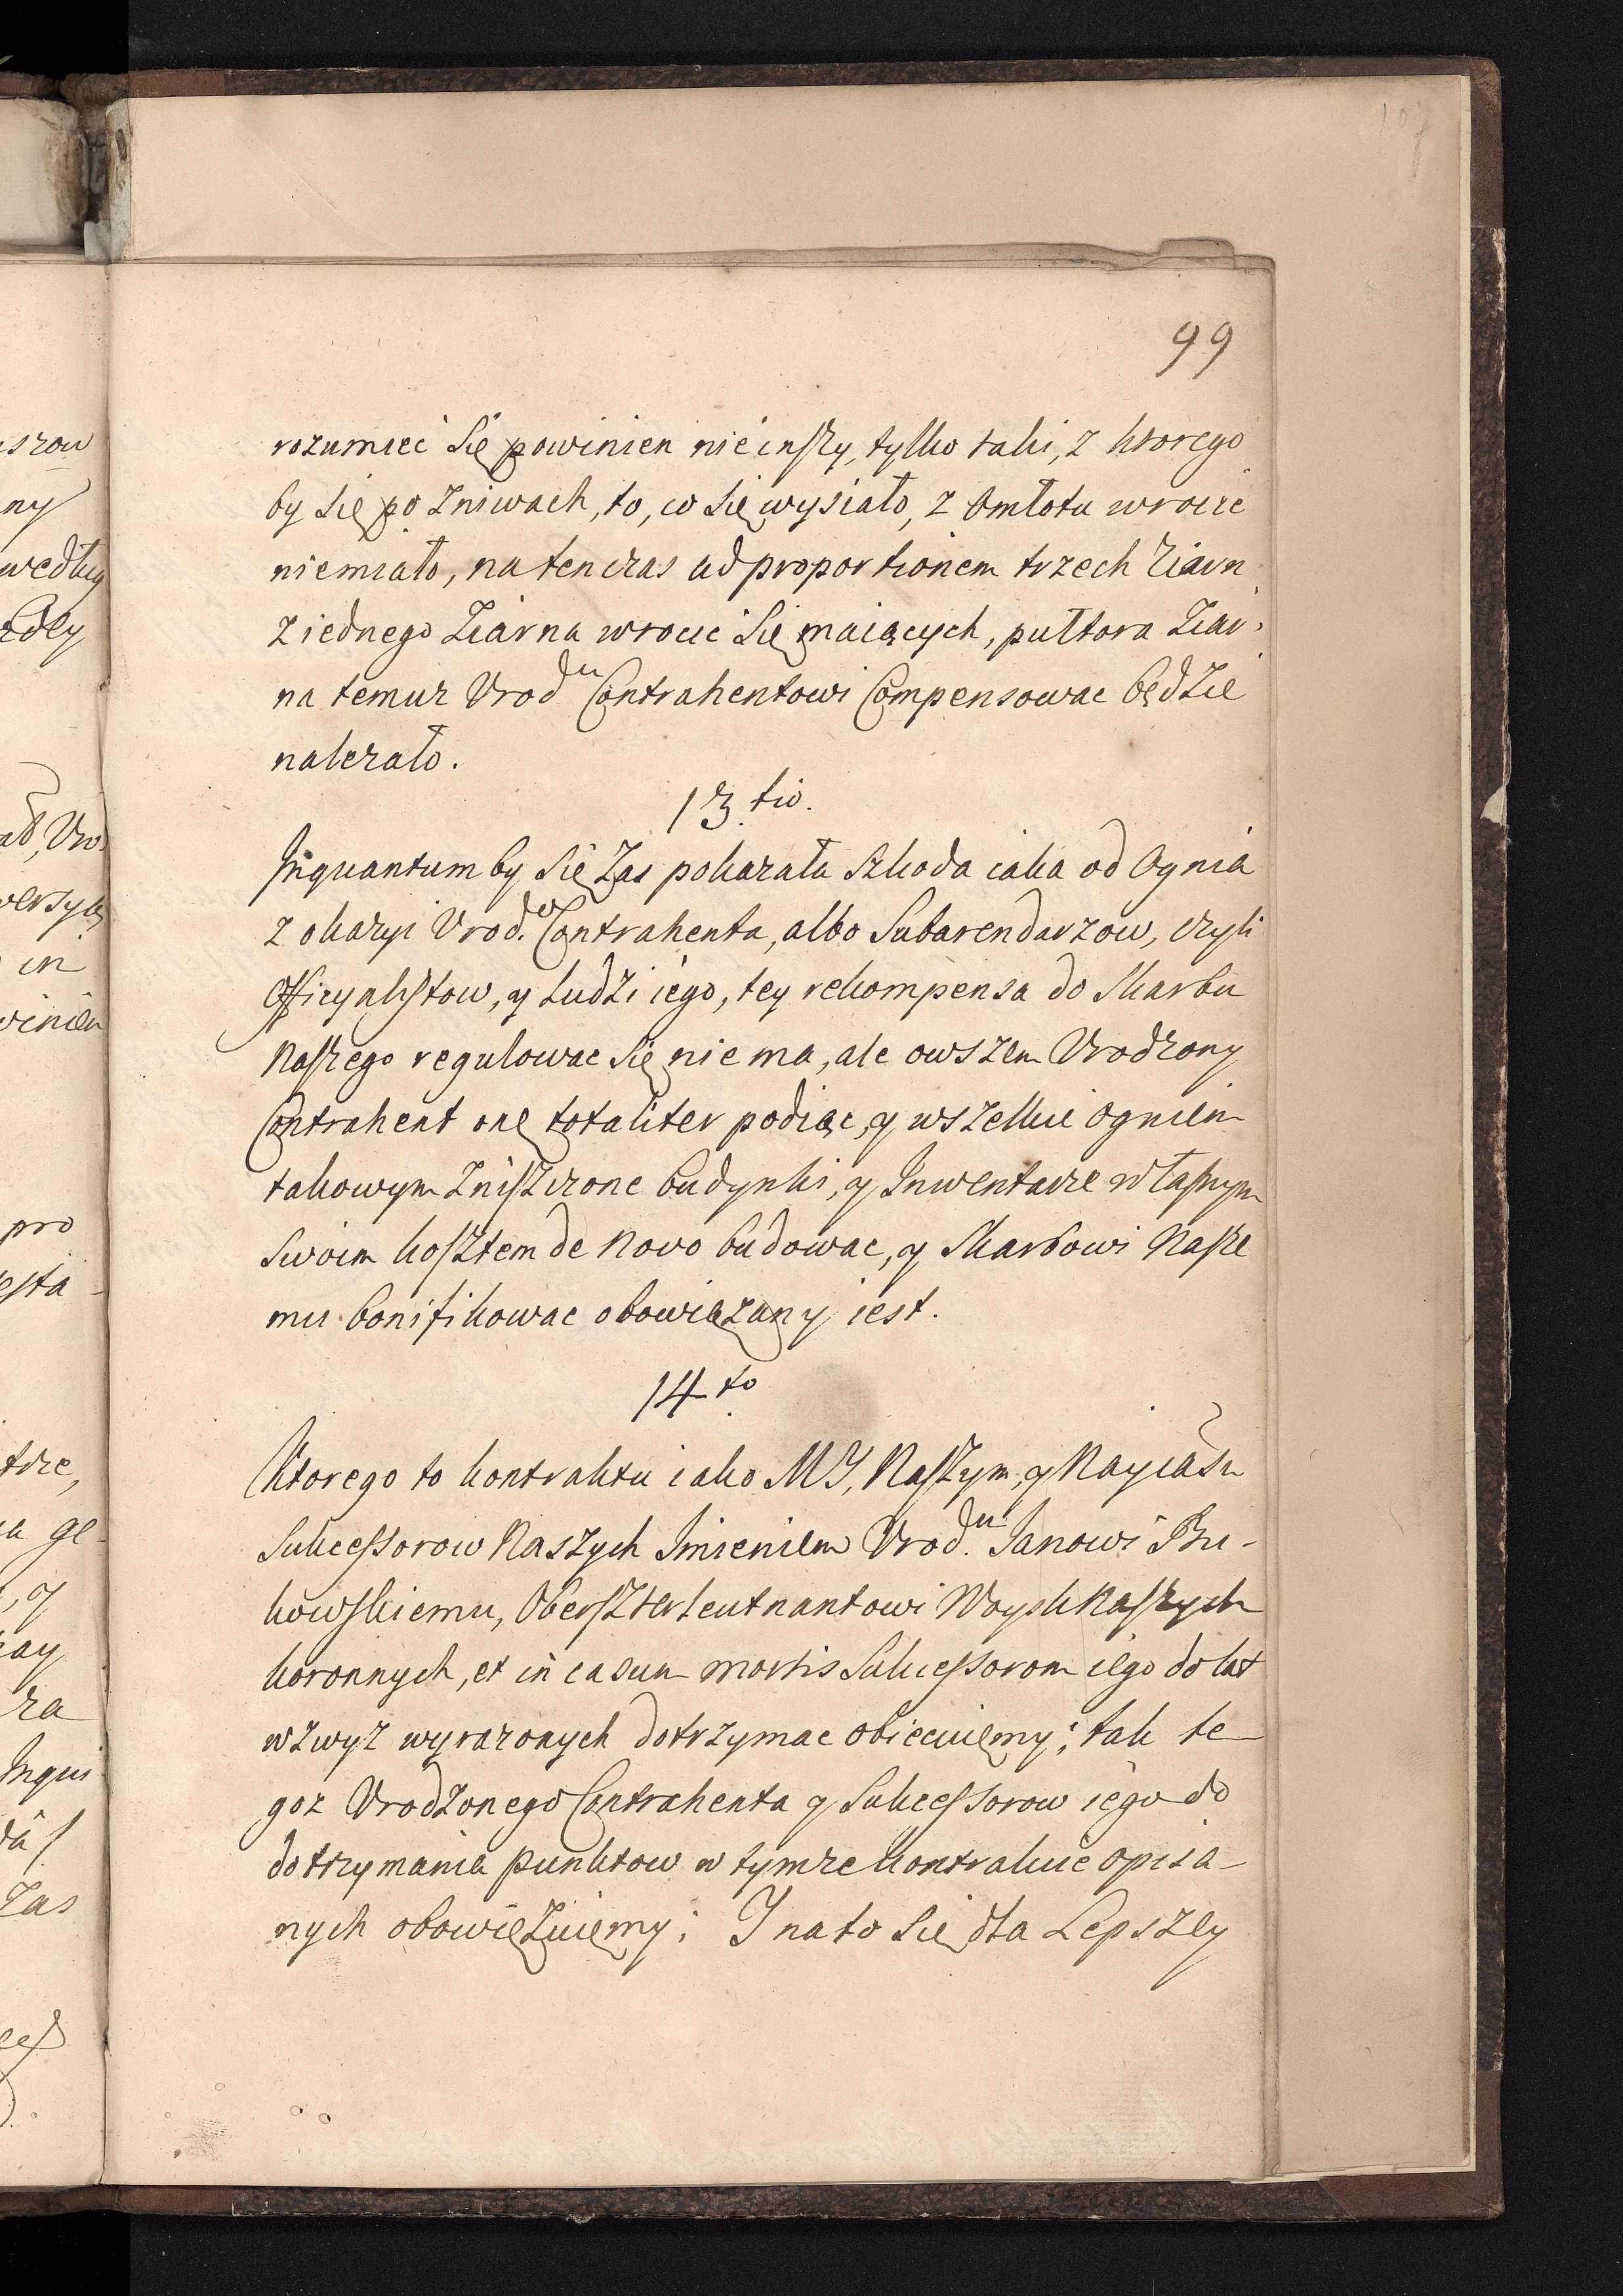 107
99
rozumiec się powinien nie inszy, tylko taki, z ktorego
by się po zniwach, to, co się wysiało, z omłotu wrocic
niemiało, na ten czas ad proportionem trzech Ziarn
z iednego Ziarna wrocic się maiących, pułtora Ziar,
na temuz Urod.u Contrahentowi Compensowac będzie
nalezało.
13.tio.
Inquantum by się zas pokazała szkoda iaka od Ognia
z okazyi Urod.o Contrahenta, albo Subarendarzow, czyli
Officyalistow, y Ludzi iego, tey rekompensa do Skarbu
Naszego regulowac się nie ma, ale owszem Urodzony
Contrahent onę totaliter podiąc, y wszelkie ogniem
takowym zniszczone budynki, y Inwentarze własnym
swoim kosztem de novo budowac, y Skarbowi Nasze
mu bonifikowac obowiązany iest.
14.to
Ktorego to kontraktu iako MY, Naszym, y Nayias:
Sukcessorow Naszych Imieniem Urod.u Janowi Bu-
kowskiemu, Obersztertleutnantowi Woysk Naszych
koronnych, et in casum mortis Sukcessorom iego do lat
wzwyz wyrazonych dotrzymac obiecuiemy; tak te-
goz Urodzonego Contrahenta y Sukcessorow iego do
dotrzymania punktow w tymze kontrakcie opisa-
nych obowięzuiemy; I na to się dla Lepszey